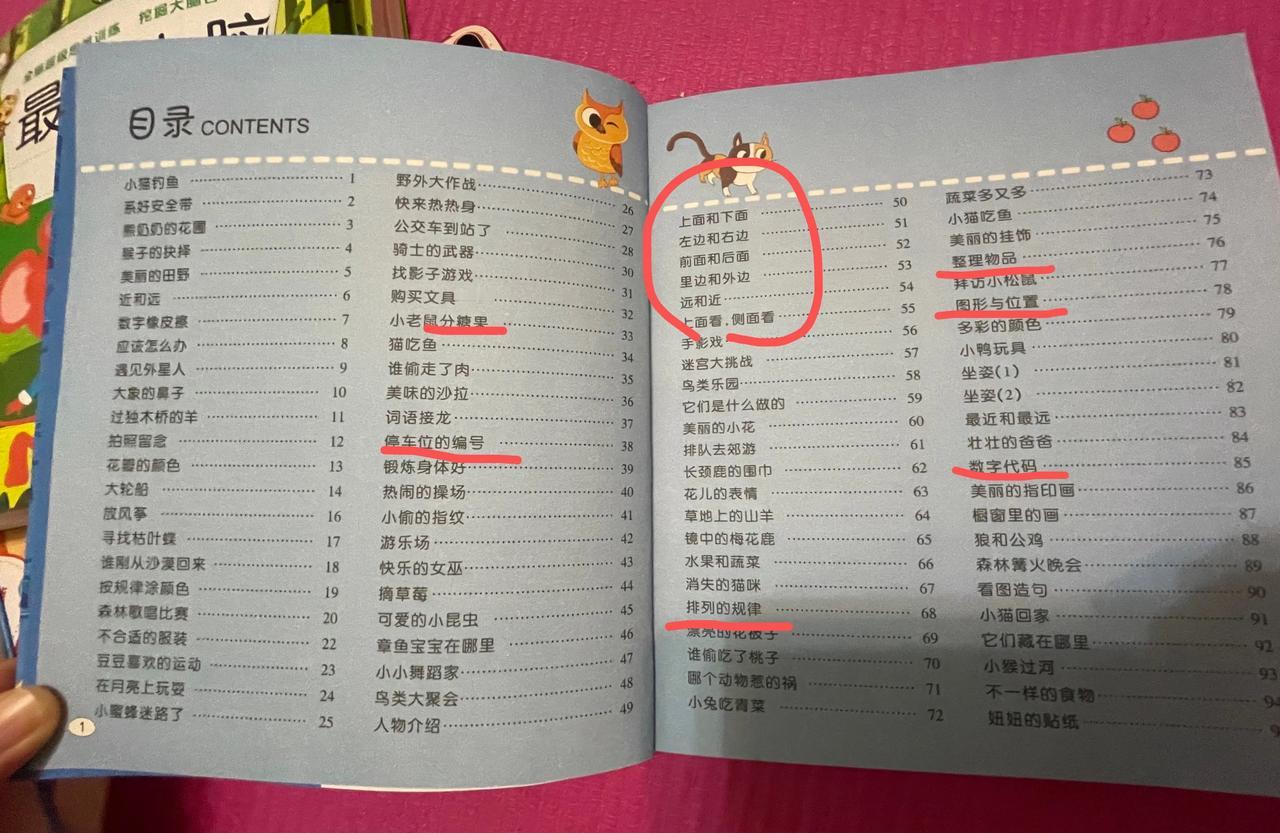 全脑超级思维训练 挖掘大脑
最
目录 CONTENTS
小猫钓鱼 1
系好安全带 2
熊奶奶的花圃 3
猴子的抉择 4
美丽的田野 5
近和远 6
数字橡皮擦 7
应该怎么办 8
遇见外星人 9
大象的鼻子 10
过独木桥的羊 11
拍照留念 12
花瓣的颜色 13
大轮船 14
放风筝 16
寻找枯叶蝶 17
谁刚从沙漠回来 18
按规律涂颜色 19
森林歌唱比赛 20
不合适的服装 22
豆豆喜欢的运动 23
在月亮上玩耍 24
小蜜蜂迷路了 25
1
野外大作战 26
快来热热身 27
公交车到站了 28
骑士的武器 30
找影子游戏 31
购买文具 32
小老鼠分糖果 33
猫吃鱼 34
谁偷走了肉 35
美味的沙拉 36
词语接龙 37
停车位的编号 38
锻炼身体好 39
热闹的操场 40
小偷的指纹 41
游乐场 42
快乐的女巫 43
摘草莓 44
可爱的小昆虫 45
章鱼宝宝在哪里 46
小小舞蹈家 47
鸟类大聚会 48
人物介绍 49
上面和下面 50
左边和右边 51
前面和后面 52
里边和外边 53
远和近 54
上面看,侧面看 55
手影戏 56
迷宫大挑战 57
鸟类乐园 58
它们是什么做的 59
美丽的小花 60
排队去郊游 61
长颈鹿的围巾 62
花儿的表情 63
草地上的山羊 64
镜中的梅花鹿 65
水果和蔬菜 66
消失的猫咪 67
排列的规律 68
漂亮的花被子 69
谁偷吃了桃子 70
哪个动物惹的祸 71
小兔吃青菜 72
蔬菜多又多 73
小猫吃鱼 74
美丽的挂饰 75
整理物品 76
拜访小松鼠 77
图形与位置 78
多彩的颜色 79
小鸭玩具 80
坐姿(1) 81
坐姿(2) 82
最近和最远 83
壮壮的爸爸 84
数字代码 85
美丽的指印画 86
橱窗里的画 87
狼和公鸡 88
森林篝火晚会 89
看图造句 90
小猫回家 91
它们藏在哪里 92
小猴过河 93
不一样的食物
妞妞的贴纸